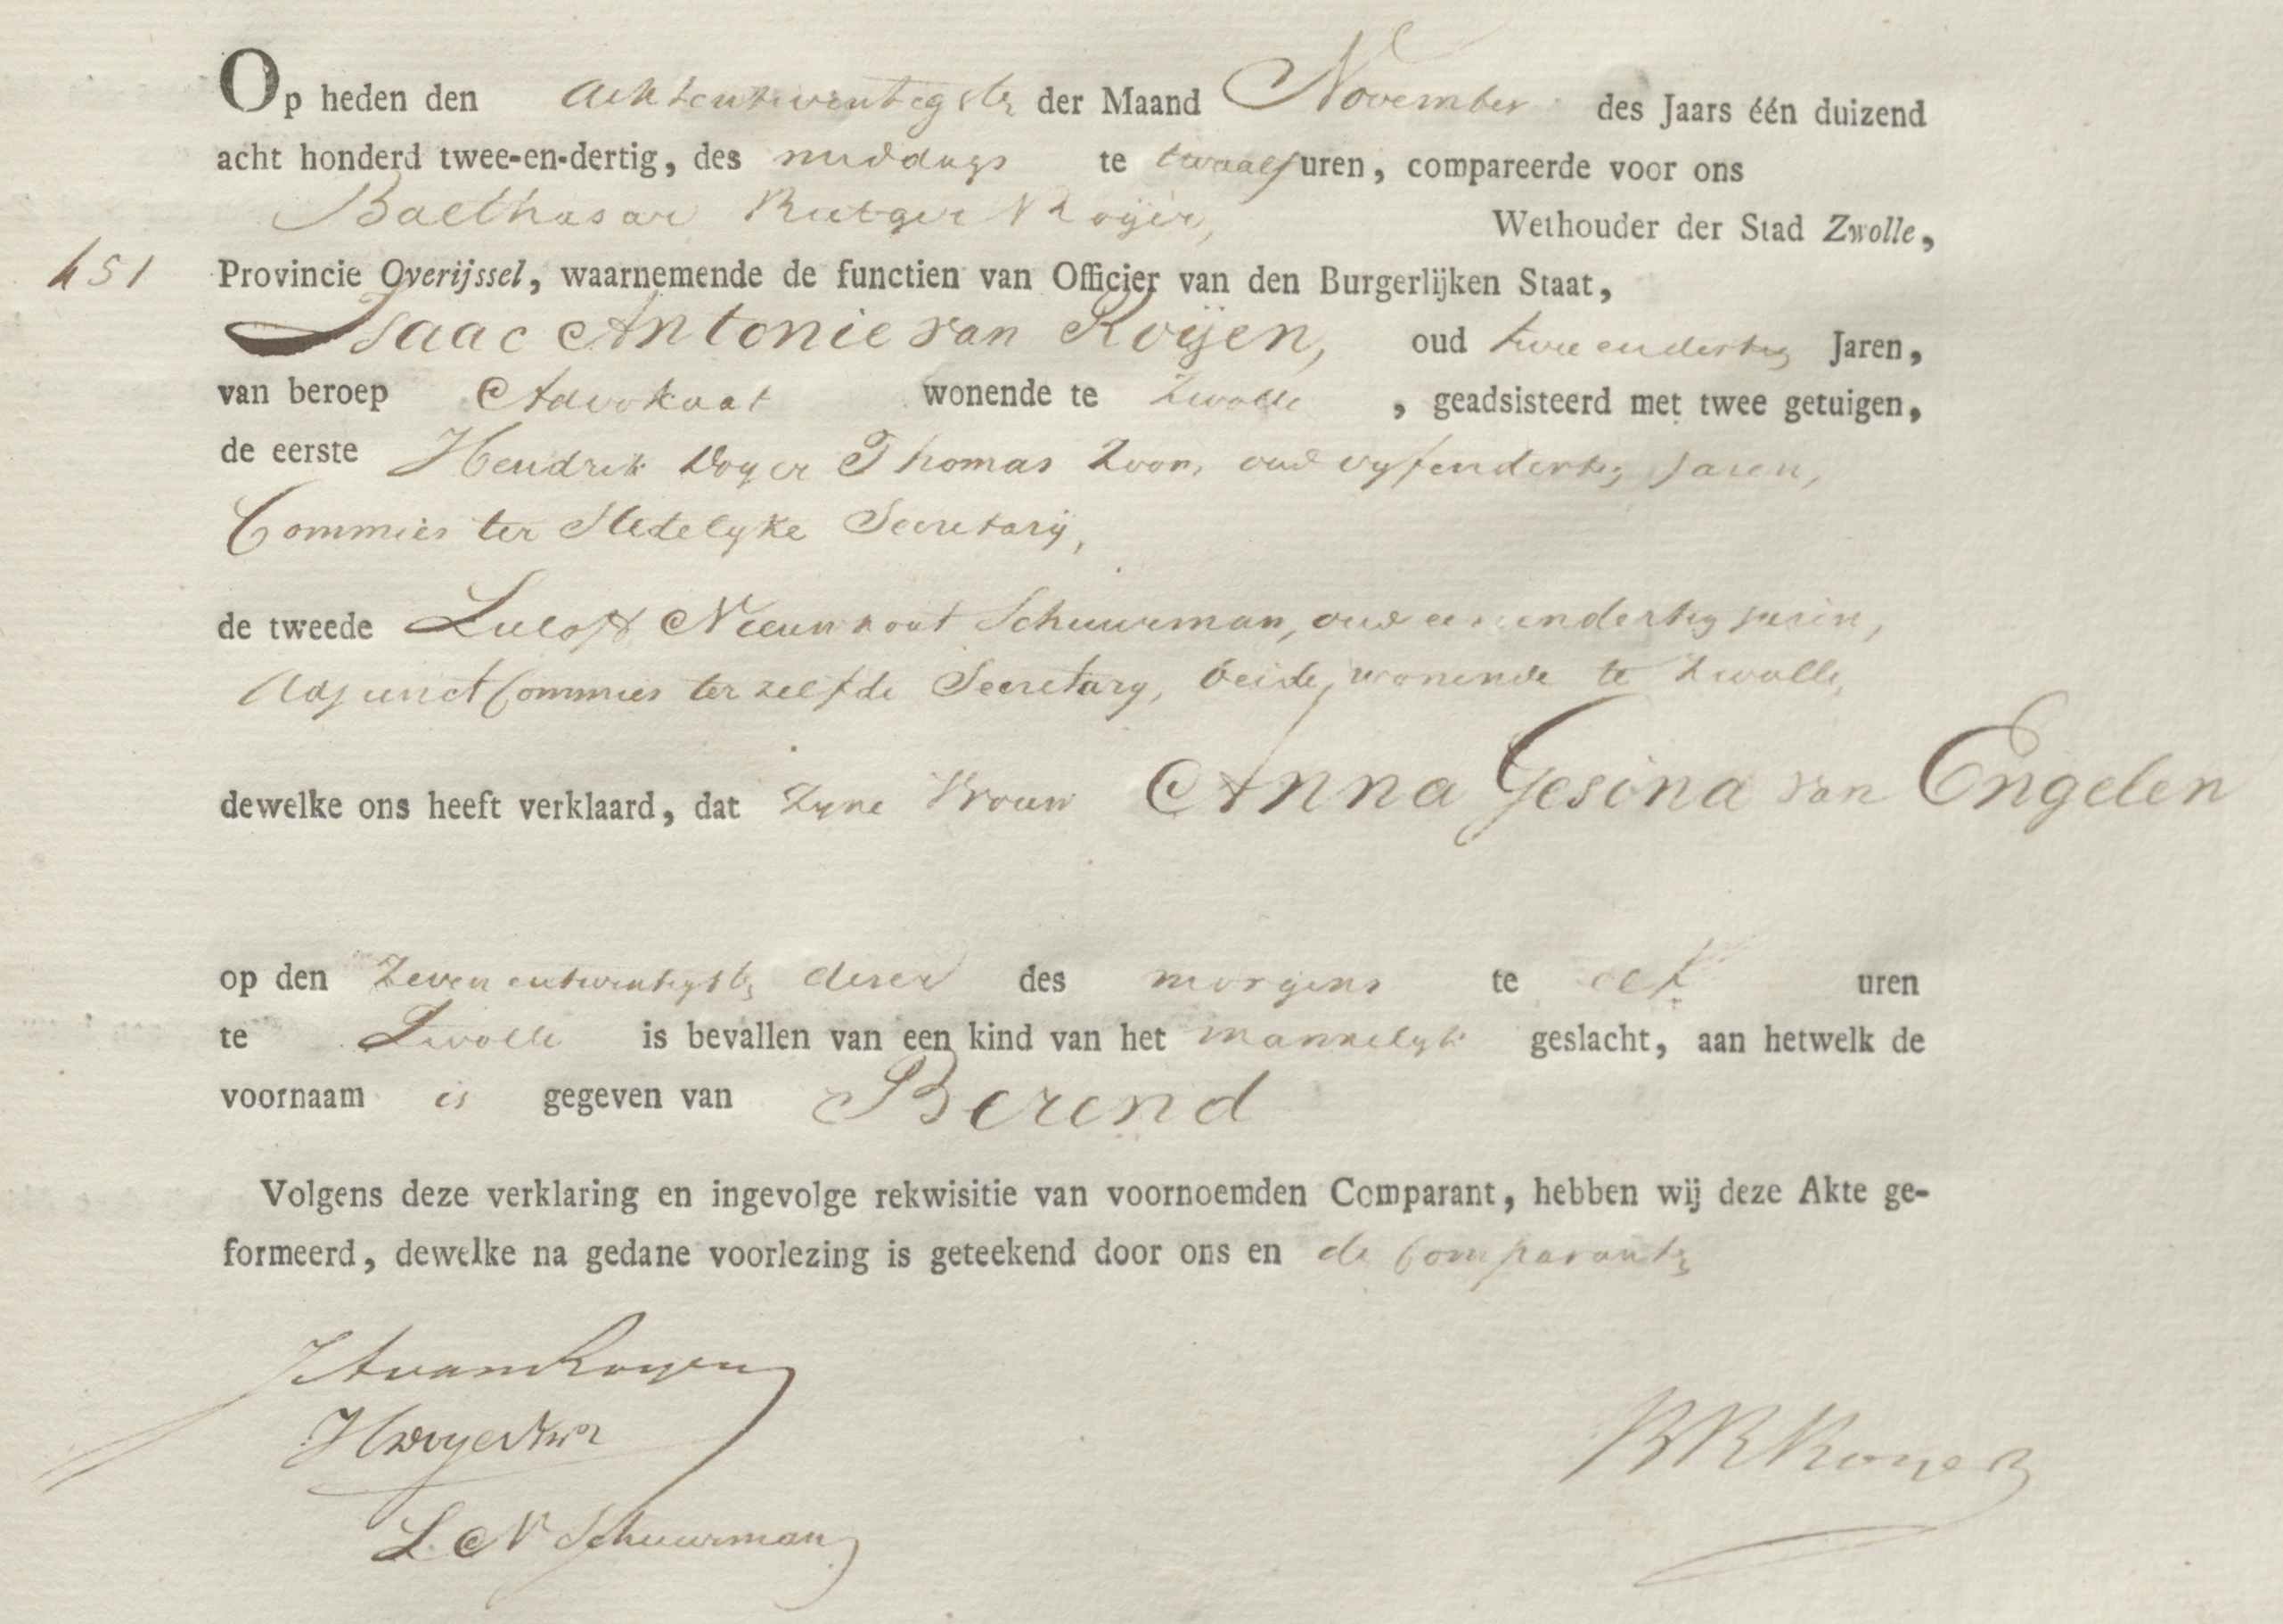 Op heden den achtentwintigste der Maand November des Jaars één duizend
acht honderd twee-en-dertig, des middags te twaalf uren, compareerde voor ons
Balthasar Rutger Royer, Wethouder der Stad Zwolle,
451 Provincie Overijssel, waarnemende de functien van Officier van den Burgerlijken Staat,
Isaac Antonie van Roijen, oud twee en dertig Jaren,
van beroep Advokaat wonende te Zwolle, geadsisteerd met twee getuigen,
de eerste Hendrik Doyer Thomas Zoon, oud vyfendertig Jaren,
Commies ter Stedelyke Secretarij,
de tweede Lulofs Nieuwhout Schuurman, oud eenendertig jaren,
Adjunct Commies ter zelfde Secretary, beide, wonende te Zwolle,
dewelke ons heeft verklaard, dat zyne Vrouw Anna Gesina van Engelen
op den Zeven entwintigste dezer des morgens te elf uren
te Zwolle is bevallen van een kind van het mannelyk geslacht, aan hetwelk de
voornaam is gegeven van Berend
Volgens deze verklaring en ingevolge rekwisitie van voornoemden Comparant, hebben wij deze Akte ge-
formeerd, dewelke na gedane voorlezing is geteekend door ons en de Comparante
IA van Royen
HDoyer
BR Royer
L N Schuurman